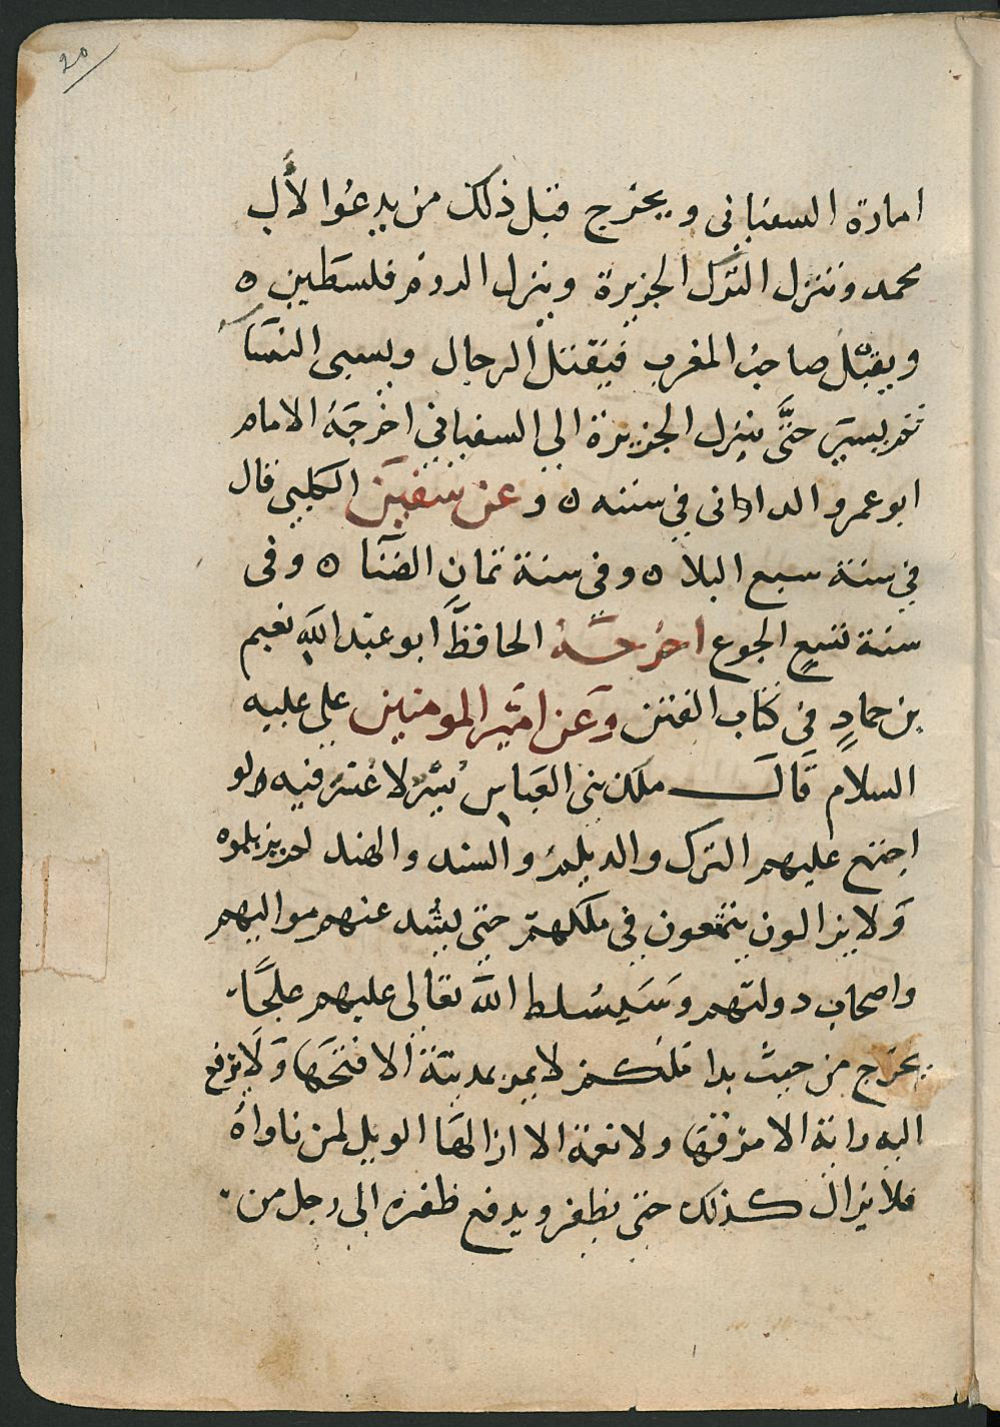 ٢٥
امارة السفياني ويخرج قبل ذلك من يدعوا لأل
محمد وتنزل الترك الجزيرة وينزل الروم فلسطين ٥
ويقبل صاحب المغرب فيقتل الرجال ويسبي النسا
ثم يسير حتَّى ينزل الجزيرة الي السفياني اخرجَهُ الامام
ابو عمرو الداانى في سننه ٥ وعن الكلبي قال
في سنة سبع البلا ٥ وفى سنة ثمان الفنا ٥ وفى
سنة تسعٍ الجوع اخرجه الحافظ ابو عبد الله نعيم
بن حمادٍ فى كتاب الفتن وعَن امير المومنين علي عليه
السلام قَالَ ملك بنى العباس يُسْر لا عُسْر فيه لو
اجتمع عليهم الترك والديلم والسند والهند لم يزيلوه
وَلا يزالون يتمتعون في ملكهم حتى يشد عنهم مواليهم
واصحاب دولتهم وَسَيُسلط الله تعالى عليهم علجًا
يخرج من حيث بدا ملكهم لا يمر بمدينة الا فتحَها وَلَا يرفع
اليه راية الا مزقها ولا نعمة الا ازالها الويل لمن ناواهُ
فلا يزال كذلك حتى يظفر ويدفع ظفره الى رجل من